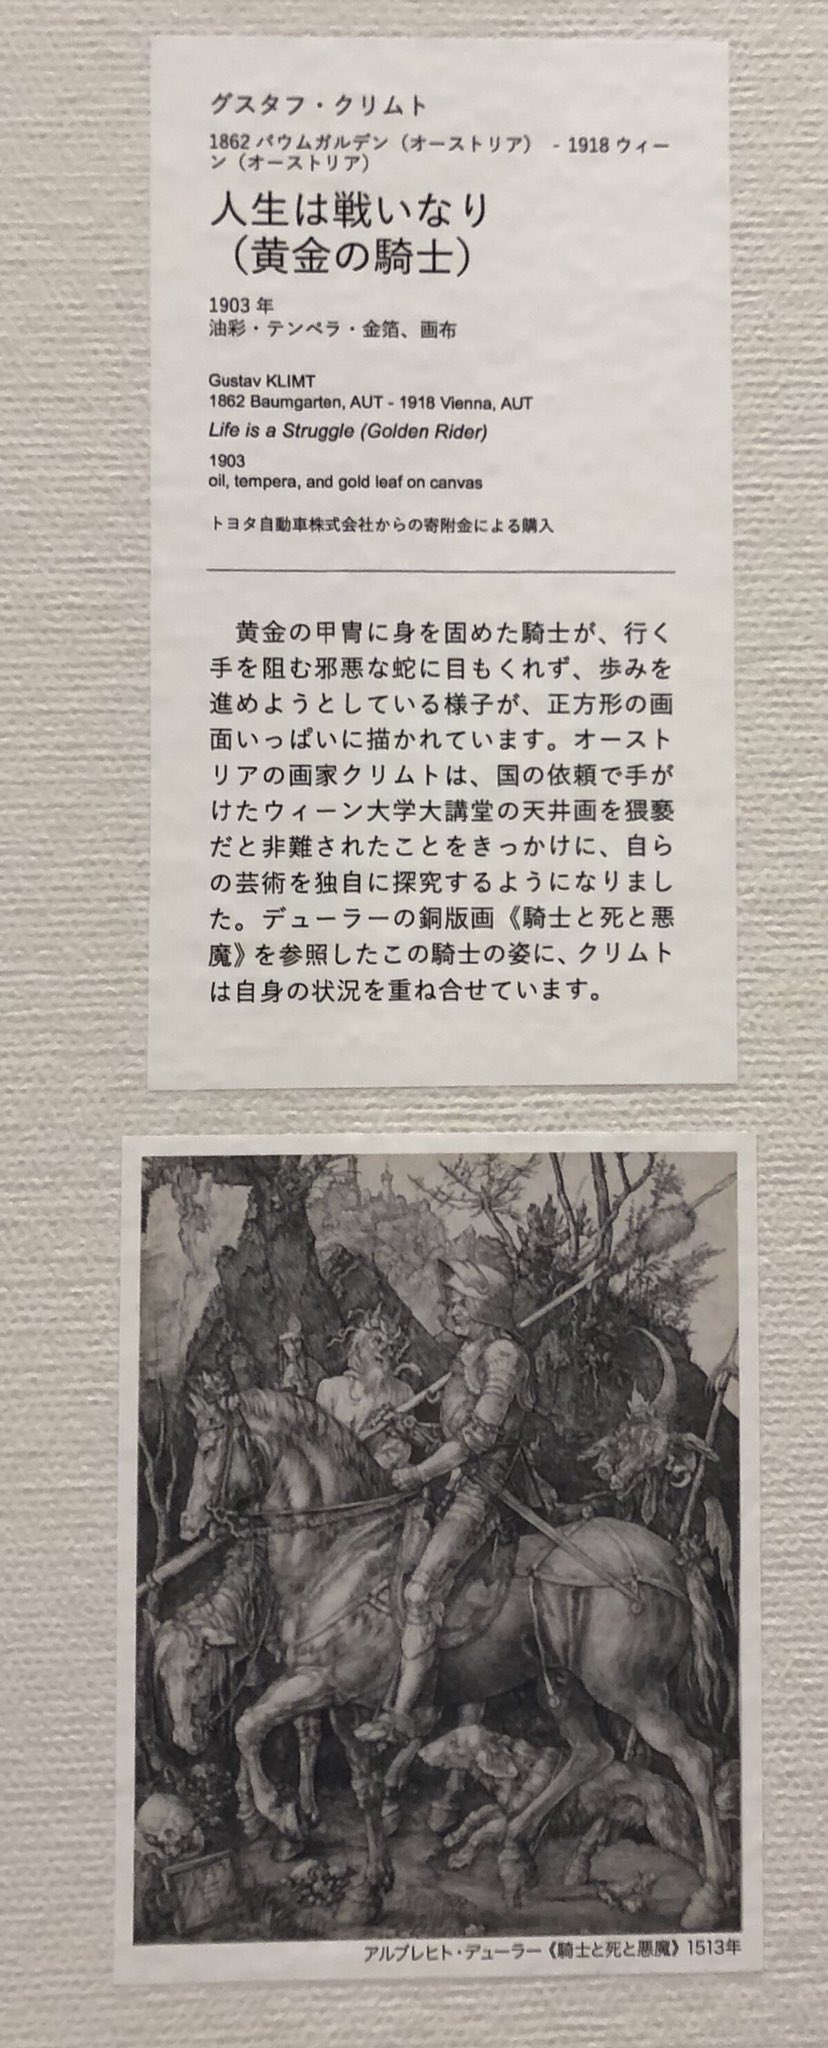 グスタフ・クリムト
1862 バウムガルデン（オーストリア） - 1918 ウィー
ン（オーストリア）
人生は戦いなり
（黄金の騎士）
1903 年
油彩・テンペラ・金箔、画布
Gustav KLIMT
1862 Baumgarten, AUT - 1918 Vienna, AUT
Life is a Struggle (Golden Rider)
1903
oil, tempera, and gold leaf on canvas
トヨタ自動車株式会社からの寄附金による購入
黄金の甲冑に身を固めた騎士が、行く
手を阻む邪悪な蛇に目もくれず、歩みを
進めようとしている様子が、正方形の画
面いっぱいに描かれています。オースト
リアの画家クリムトは、国の依頼で手が
けたウィーン大学大講堂の天井画を猥褻
だと非難されたことをきっかけに、自ら
の芸術を独自に探究するようになりまし
た。デューラーの銅版画《騎士と死と悪
魔》を参照したこの騎士の姿に、クリムト
は自身の状況を重ね合せています。
アルブレヒト・デューラー《騎士と死と悪魔》1513年